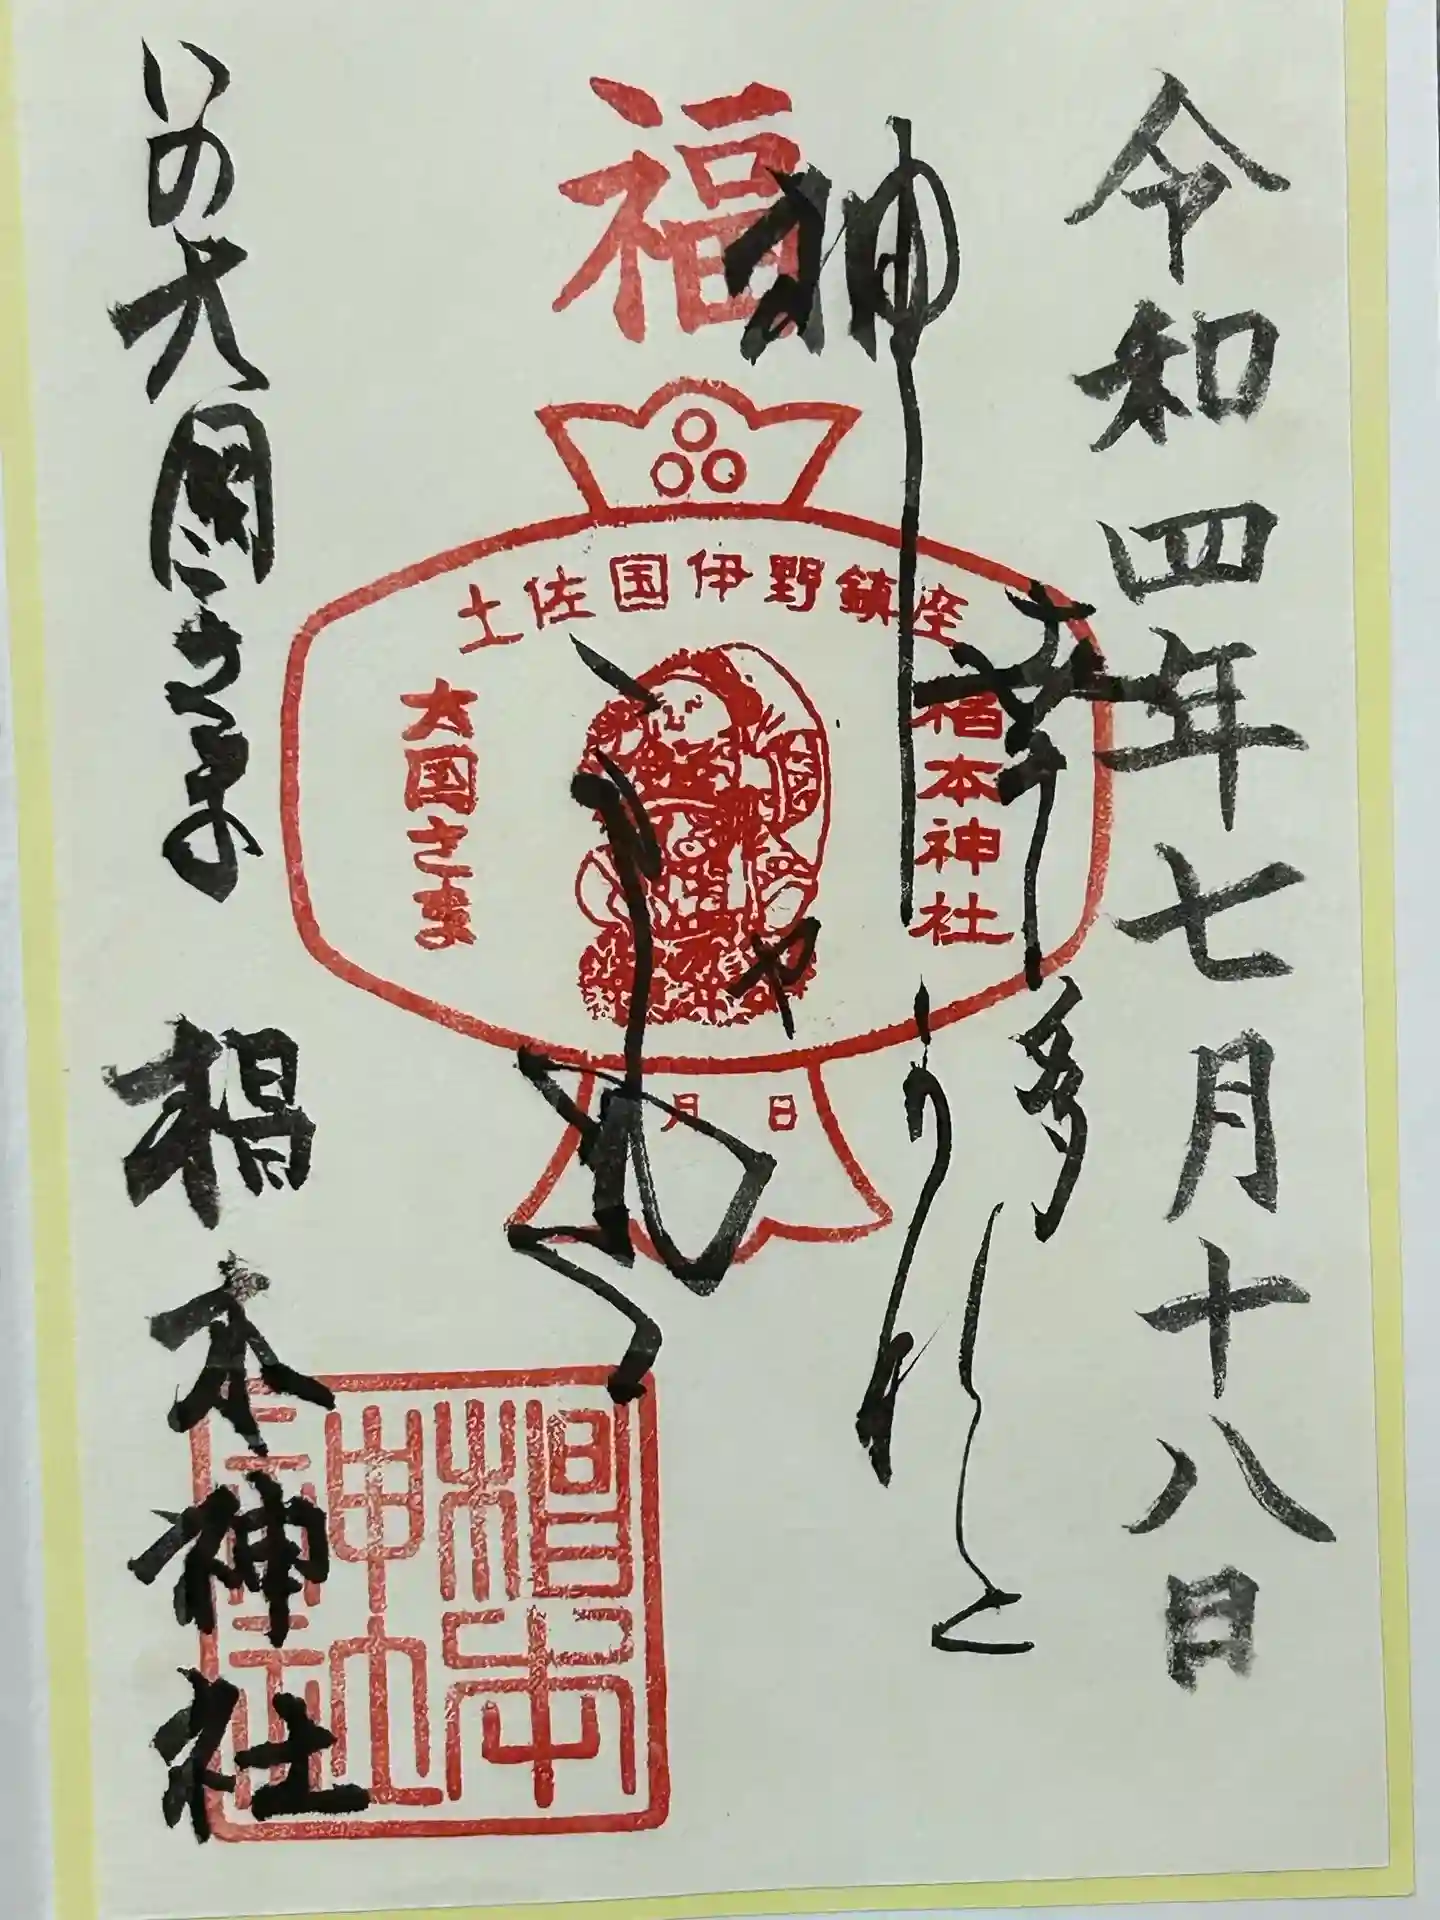 令和四年七月十八日
神
幸
多
かれと
福
土佐国伊野鎮座
椙本神社
大国さま
月 日
いの大国さま 椙本神社
椙本
神社